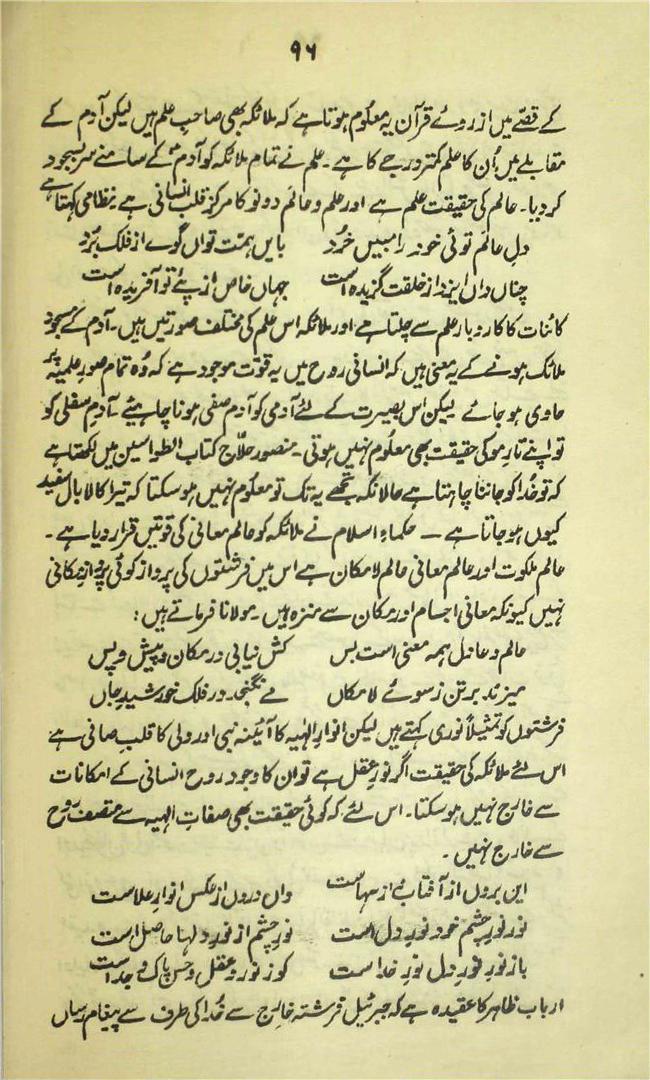 ۹۶
کے قصّے میں از روئے قرآن یہ معلوم ہوتا ہے کہ ملائکہ بھی صاحبِ علم ہیں لیکن آدم کے
مقابلے میں اُن کا علم کمتر درجے کا ہے۔ علم نے تمام ملائکہ کو آدم کے سامنے سربسجود
کر دیا۔ عالم کی حقیقت علم ہے اور علم و عالَم دونو کا مرکز قلب انسانی ہے۔ نظامی کہتا ہے
دلِ عالَم توئی خود را مبیں خُرد بایں ہمّت تواں گوے از فلک بُرد
چناں داں ایزد از خلقت گزیدہ است جہاں خاص از پئے تو آفریدہ است
کائنات کا کاروبار علم سے چلتا ہے اور ملائکہ اس علم کی مختلف صورتیں ہیں۔ آدم کے مسجود
ملائک ہونے کے یہ معنی ہیں کہ انسانی روح میں یہ قوّت موجود ہے کہ وُہ تمام صورِ علمیّہ پر
حاوی ہو جائے لیکن اس بصیرت کے لئے آدمی کو آدم صفی ہونا چاہیئے۔ آدمِ سفلی کو
تو اپنے تارِ مو کی حقیقت بھی معلوم نہیں ہوتی۔ منصور حلّاج کتاب الطواسین میں لکھتا ہے
کہ تو خُدا کو جاننا چاہتا ہے حالانکہ تجھے یہ تک تو معلوم نہیں ہو سکتا کہ تیرا کالا بال سفید
کیوں ہو جاتا ہے — حکماءِ اسلام نے ملائکہ کو عالم معانی کی قوتیں قرار دیا ہے۔
عالم ملکوت اور عالم معانی عالم لامکان ہے اس میں فرشتوں کی پرواز کوئی پروازِ مکانی
نہیں کیونکہ معانی اجسام اور مکان سے منزہ ہیں۔ مولانا فرماتے ہیں:
عالم و عادل ہمہ معنی است بس کش نیابی در مکان و پیش و پس
میزند برتن ز سوئے لامکاں مے نگنجد در فلک خورشیدِ جاں
فرشتوں کو تمثیلاً نوری کہتے ہیں لیکن انوارِ الٰہیہ کا آئینہ نبی اور ولی کا قلب صافی ہے
اس لئے ملائکہ کی حقیقت اگر نورِ عقل ہے تو ان کا وجود روح انسانی کے امکانات
سے خارج نہیں ہو سکتا۔ اس لئے کہ کوئی حقیقت بھی صفاتِ الٰہیہ سے متصف روح
سے خارج نہیں۔
ایں بروں از آفتاب و از سہاست واں دروں از عکس انوارِ علاست
نورِ نورِ چشم خود نورِ دل است نورِ چشم از نورِ دلہا حاصل است
باز نورِ نورِ دل نورِ خداست کو ز نورِ عقل و حس پاک و جداست
ارباب ظاہر کا عقیدہ ہے کہ جبرئیل فرشتہ خارج سے خُدا کی طرف سے پیغام رساں